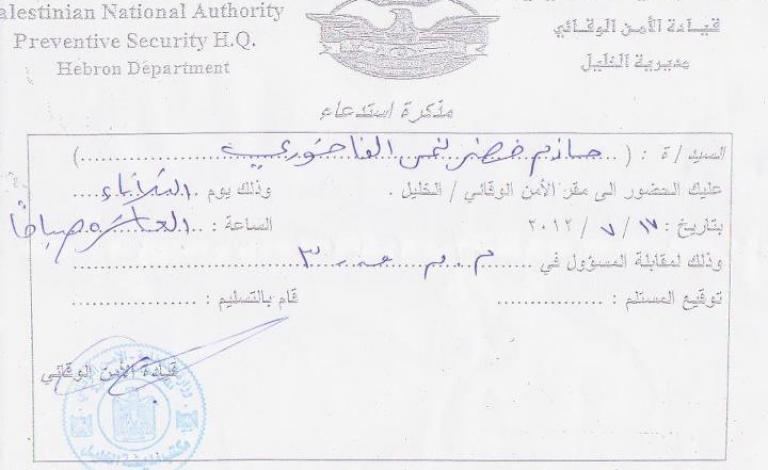 alestinian National Authority
Preventive Security H.Q.
Hebron Department
قيادة الأمن الوقائي
مديرية الخليل
مذكرة استدعاء
السيد / ة : ( حازم خضر نمر الفاخوري )
عليك الحضور الى مقر الأمن الوقائي / الخليل . وذلك يوم الثلاثاء
بتاريخ : ١٧ / ٧ / ٢٠١٢ الساعة : العاشرة صباحاً
وذلك لمقابلة المسؤول في م . م ٣
توقيع المستلم : قام بالتسليم :
قيادة الأمن الوقائي